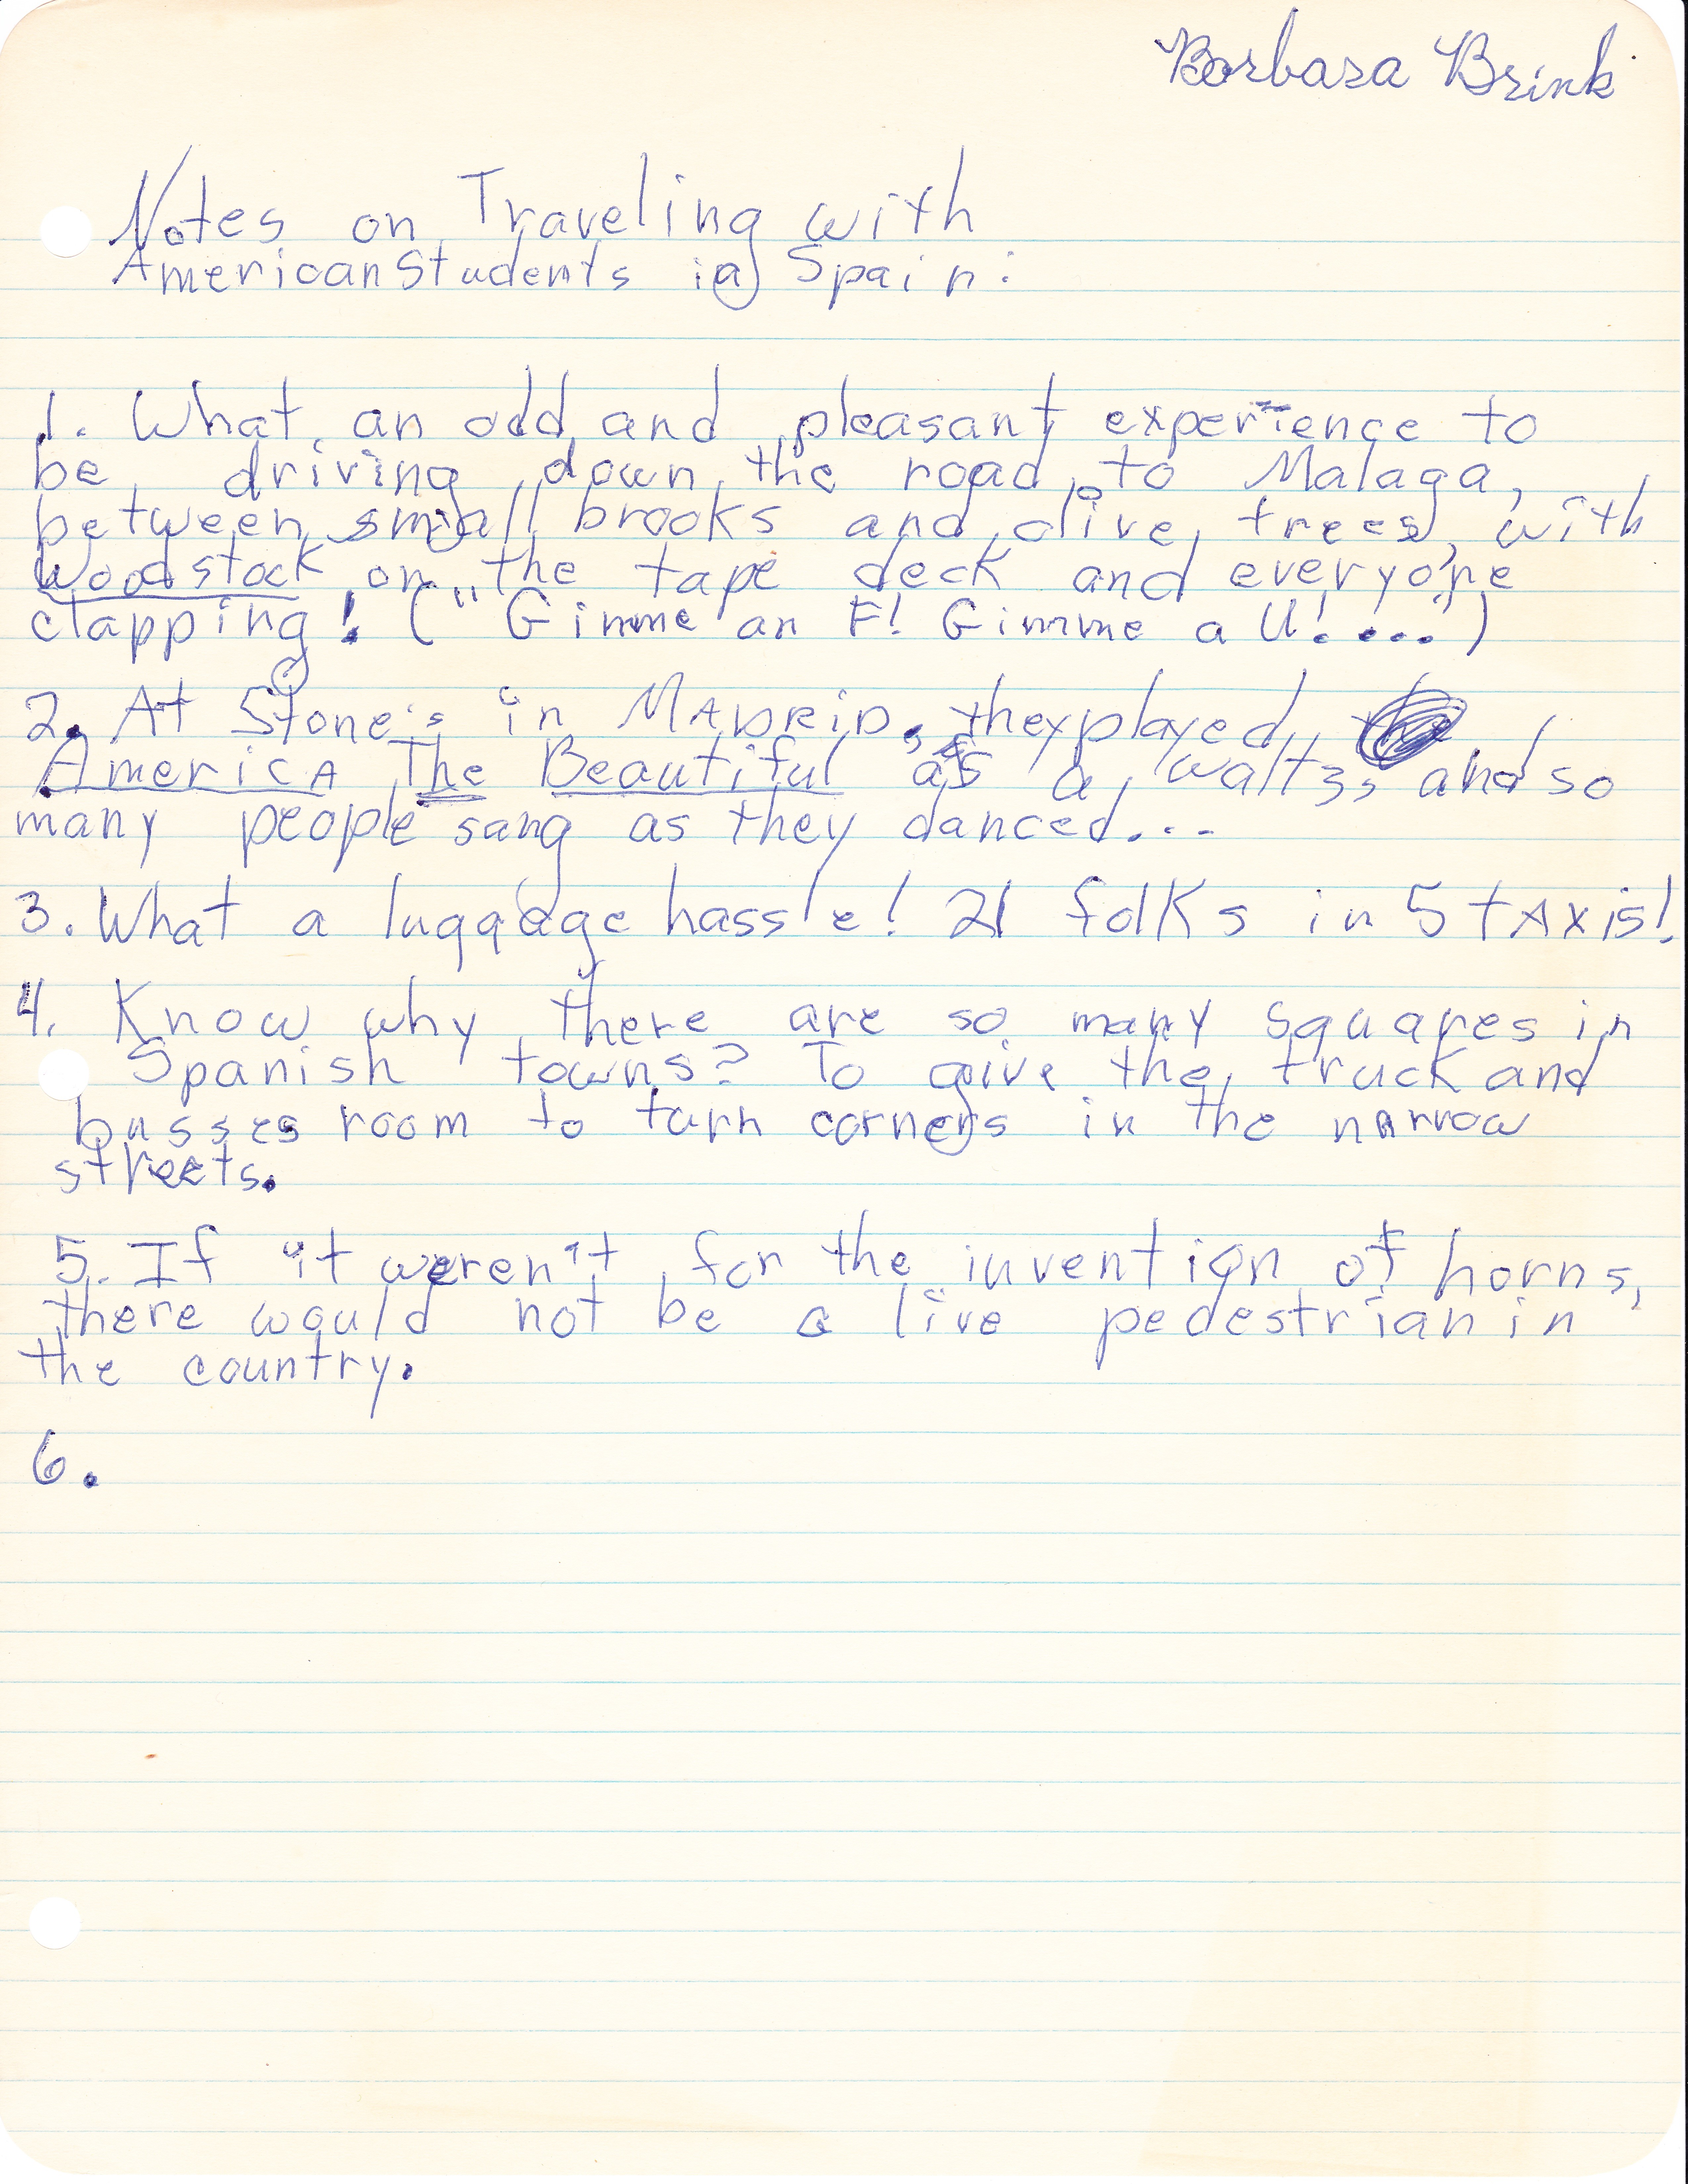 Barbara Brink
Notes on Traveling with
American Students in Spain:
1. What an odd and pleasant experience to
be driving down the road to Malaga,
between small brooks and olive trees, with
Woodstock on the tape deck and everyone
clapping! ("Gimme an F! Gimme a U!....")
2. At Stone's in MADRID, they played
America The Beautiful as a waltz, and so
many people sang as they danced...
3. What a luggage hassle! 21 folks in 5 taxis!
4. Know why there are so many squares in
Spanish towns? To give the truck and
busses room to turn corners in the narrow
streets.
5. If it weren't for the invention of horns,
there would not be a live pedestrian in
the country.
6.